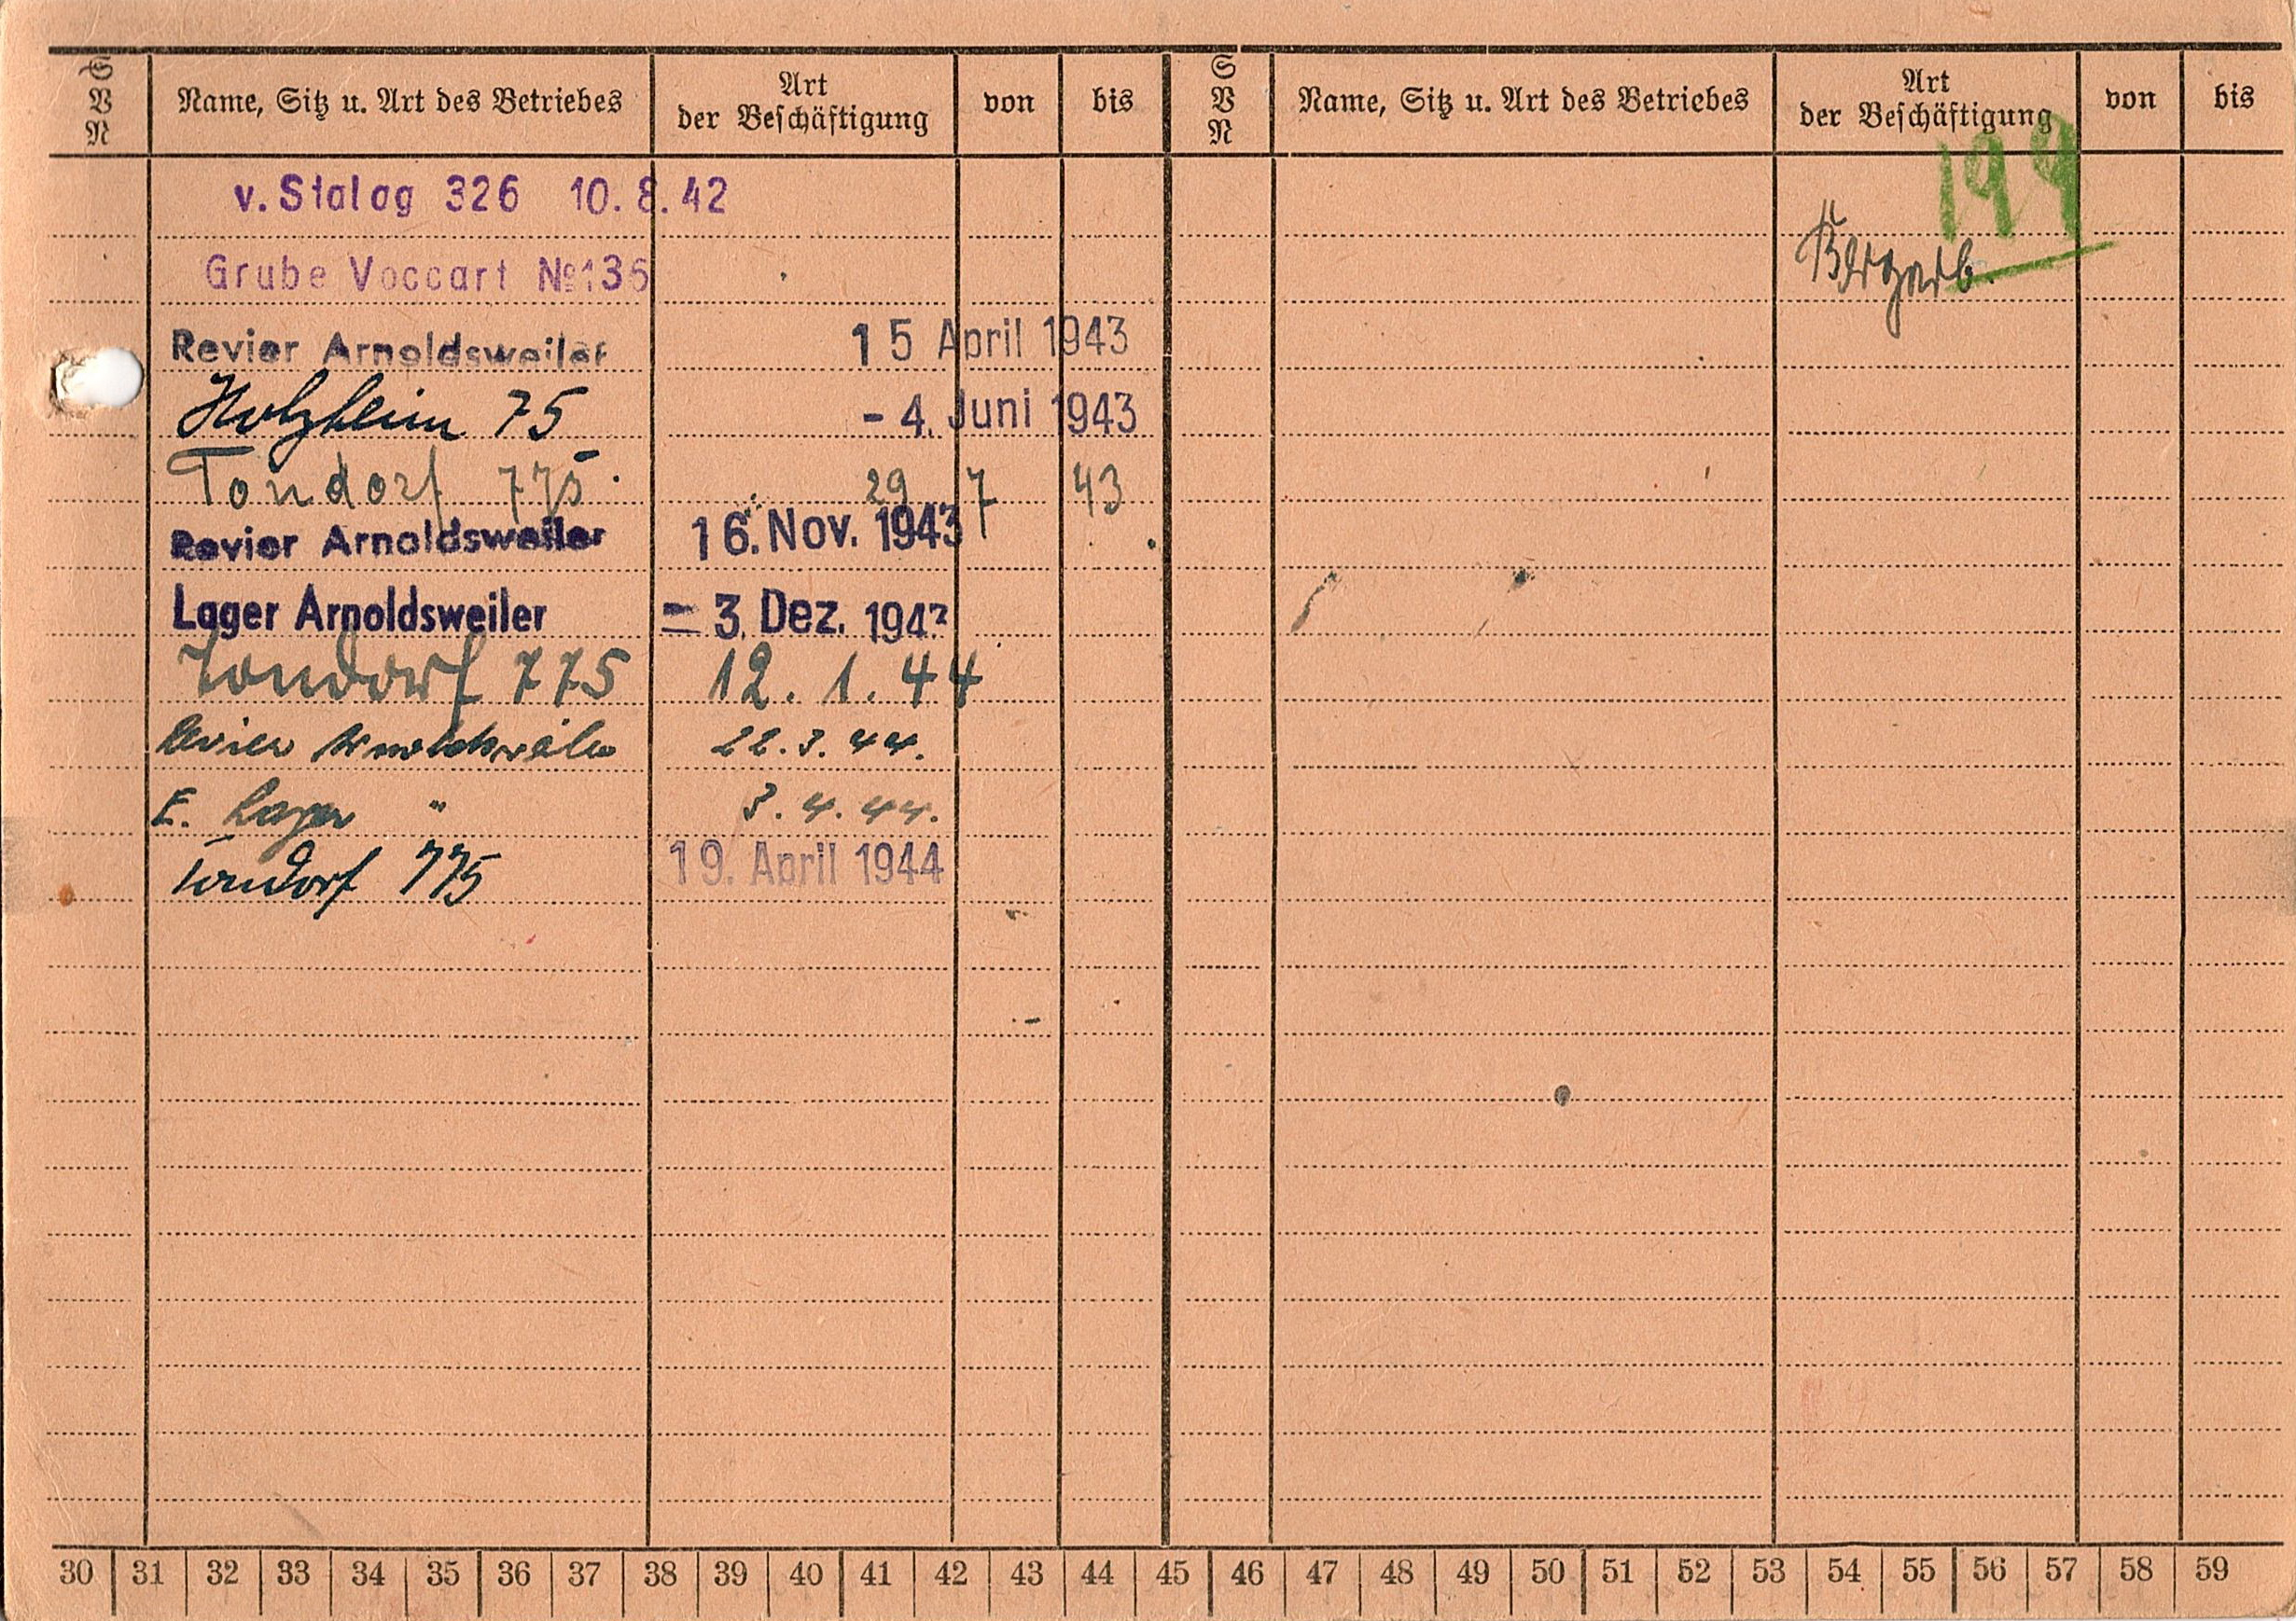 S V N Name, Sitz u. Art des Betriebes Art der Beschäftigung von bis S V N Name, Sitz u. Art des Betriebes Art der Beschäftigung von bis
199
v. Stalag 326 10. 8. 42
Bergarb.
Grube Voccart No 136
Revier Arnoldsweiler 15 April 1943
Holzheim 75 - 4. Juni 1943
Tondorf 775. 29 7 43
Revier Arnoldsweiler 16. Nov. 1943
Lager Arnoldsweiler - 3. Dez. 1943
Tondorf 775 12. 1. 44
Revier Arnoldsweiler 22. 3. 44.
E. Lager " 3. 4. 44.
Tondorf 775 19. April 1944
30 31 32 33 34 35 36 37 38 39 40 41 42 43 44 45 46 47 48 49 50 51 52 53 54 55 56 57 58 59